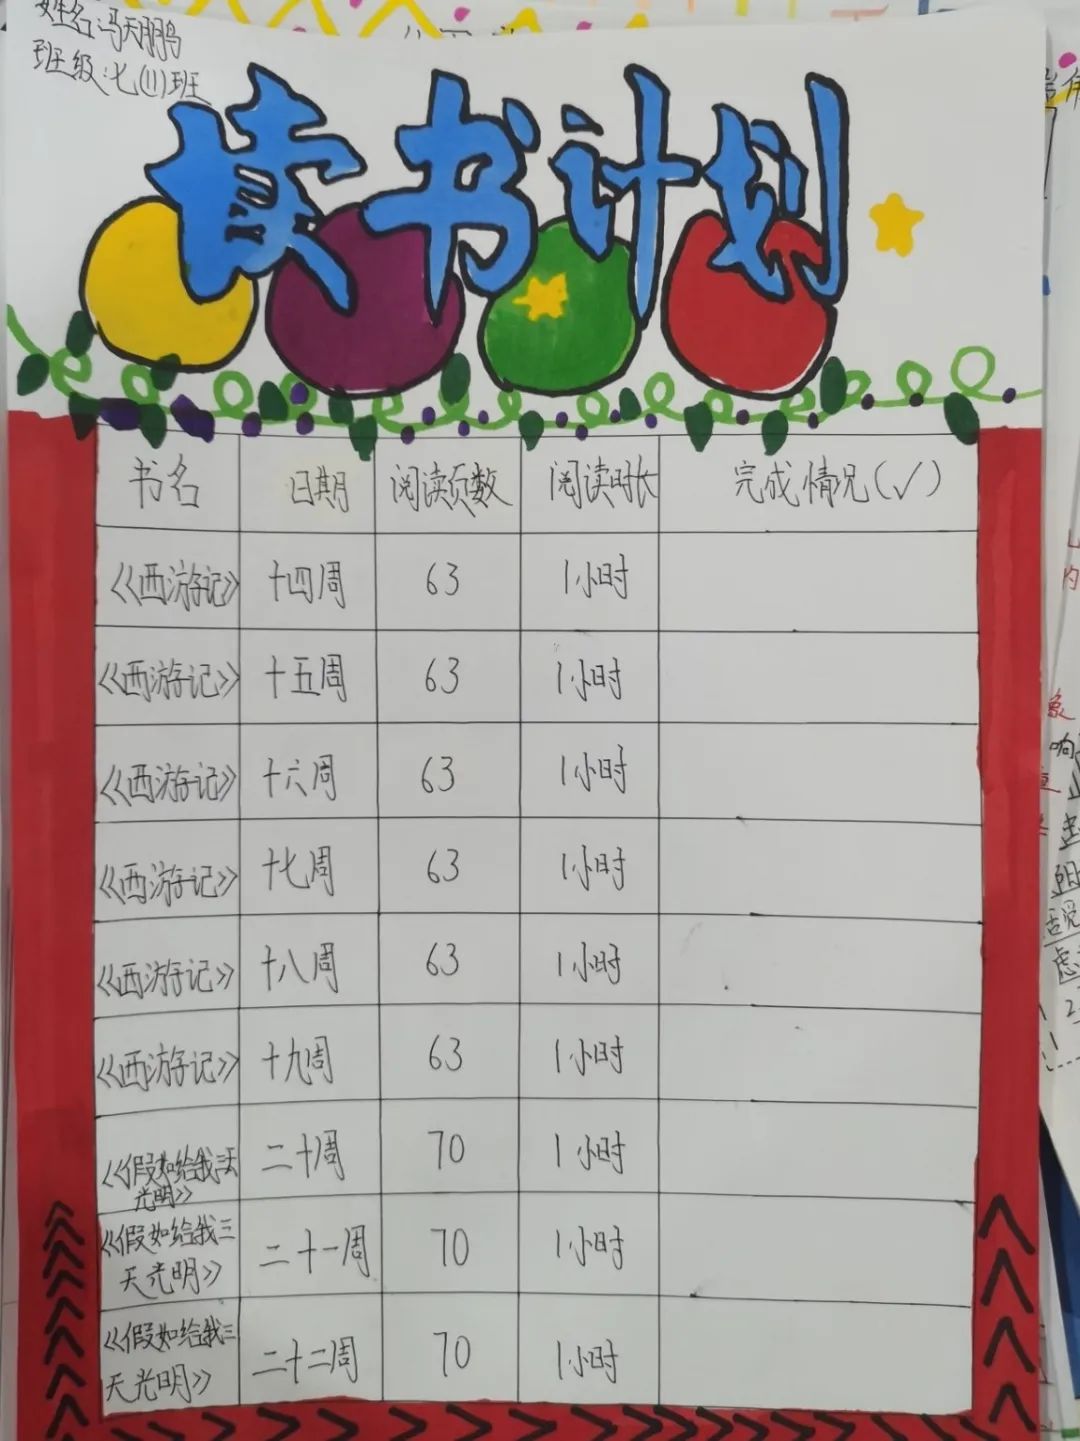 姓名:冯天鹏
班级:七(11)班
读书计划
书名 日期 阅读页数 阅读时长 完成情况(✓)
《西游记》 十四周 63 1小时
《西游记》 十五周 63 1小时
《西游记》 十六周 63 1小时
《西游记》 十七周 63 1小时
《西游记》 十八周 63 1小时
《西游记》 十九周 63 1小时
《假如给我三天 二十周 70 1小时
光明》
《假如给我三 二十一周 70 1小时
天光明》
《假如给我三 二十二周 70 1小时
天光明》